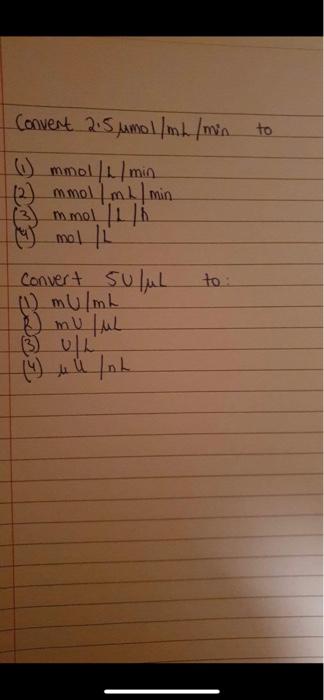 Convert 2.5 μmol/mL/min to
(1) mmol/L/min
(2) mmol/mL/min
(3) mmol/L/h
(4) mol/L
Convert 5U/μL to:
(1) mU/mL
(2) mU/μL
(3) U/L
(4) μU/nL